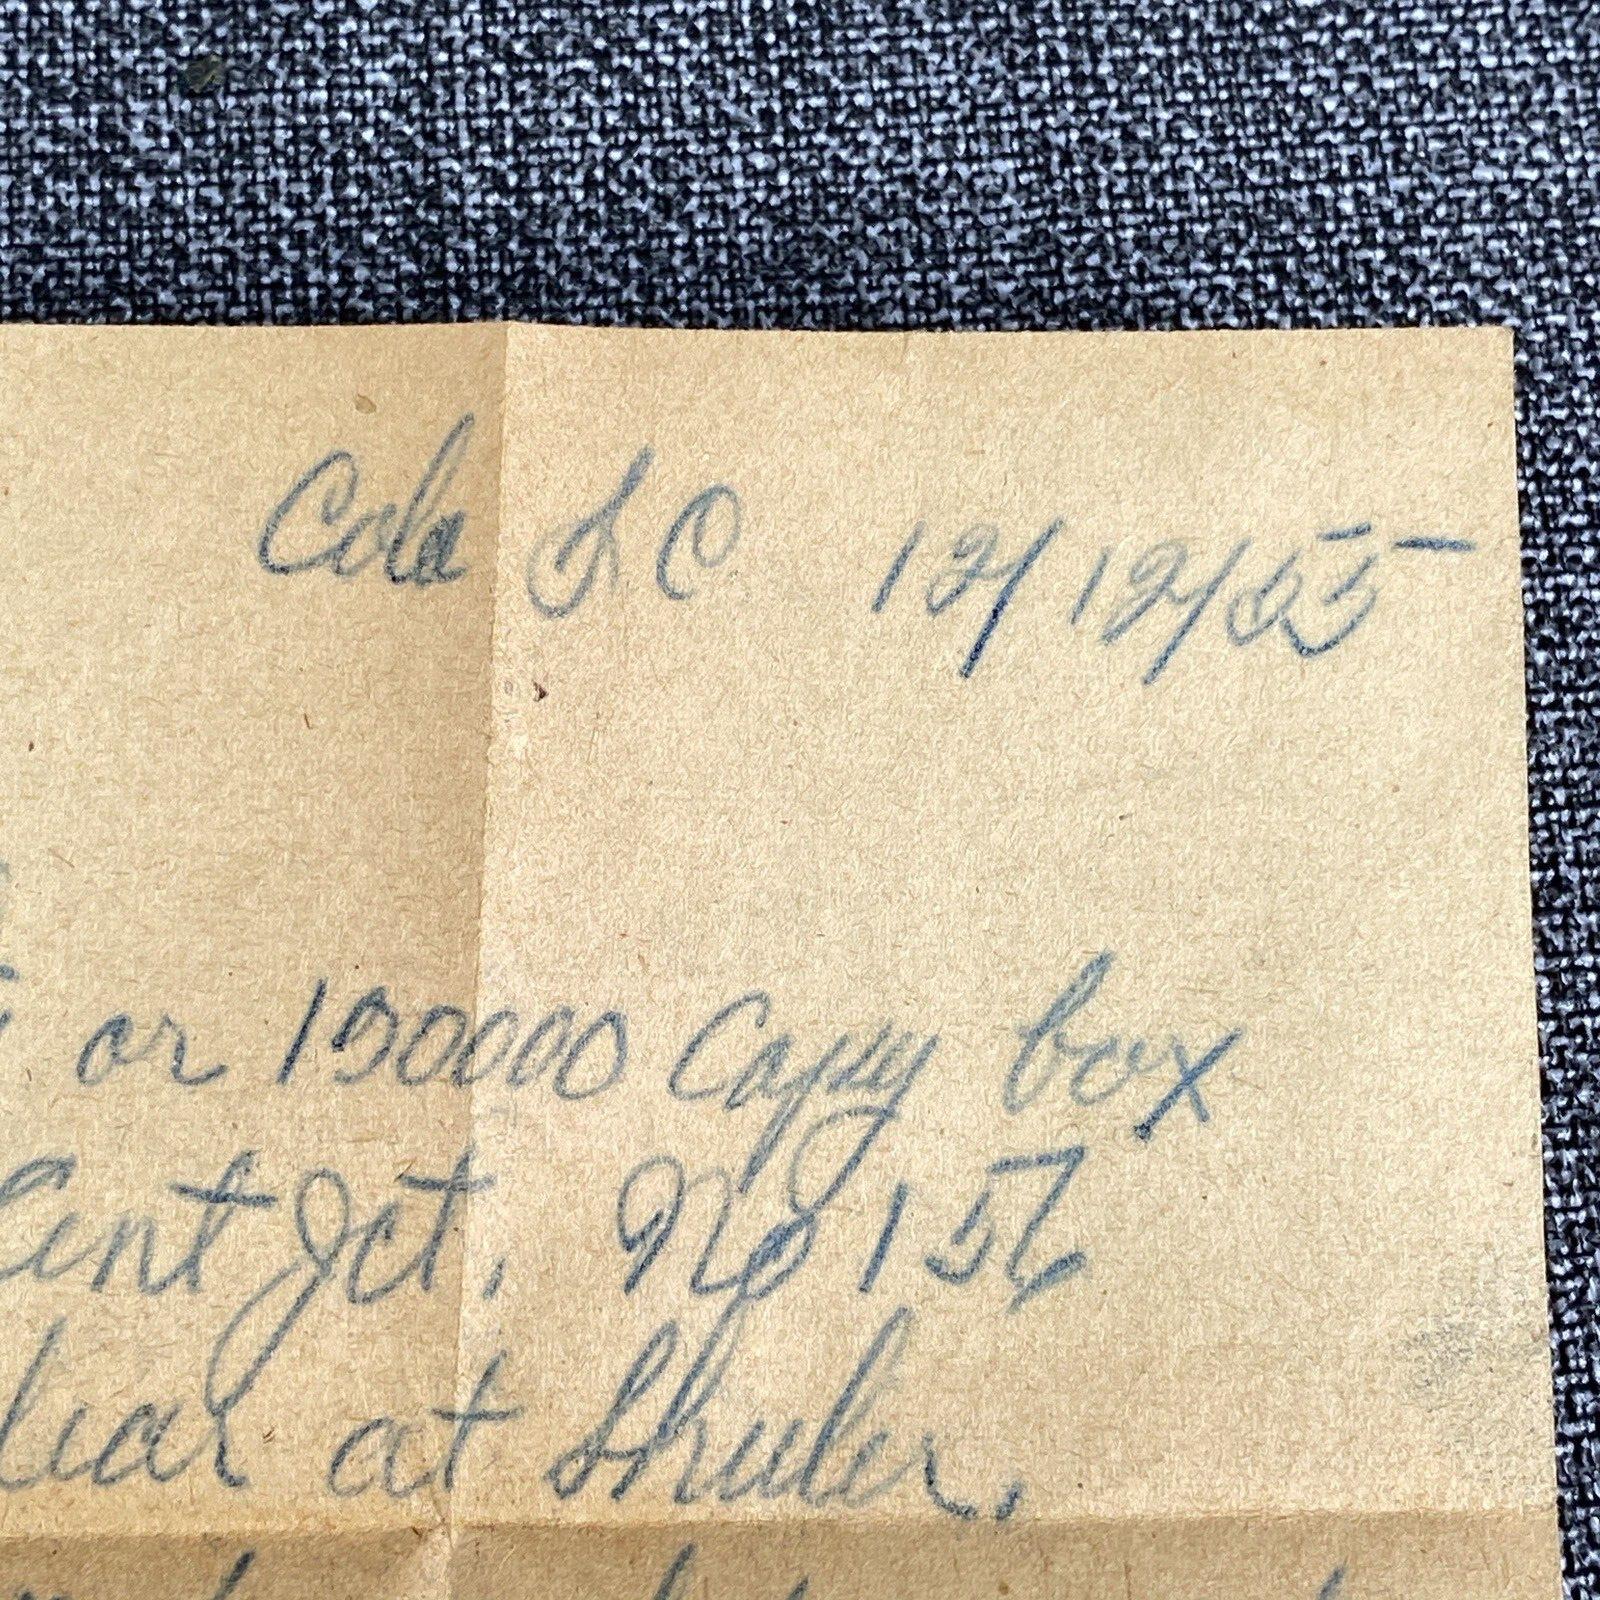 Cola SC 12/12/55
or 150000 Capy box
Cint Jct, No 156
at Shuler,